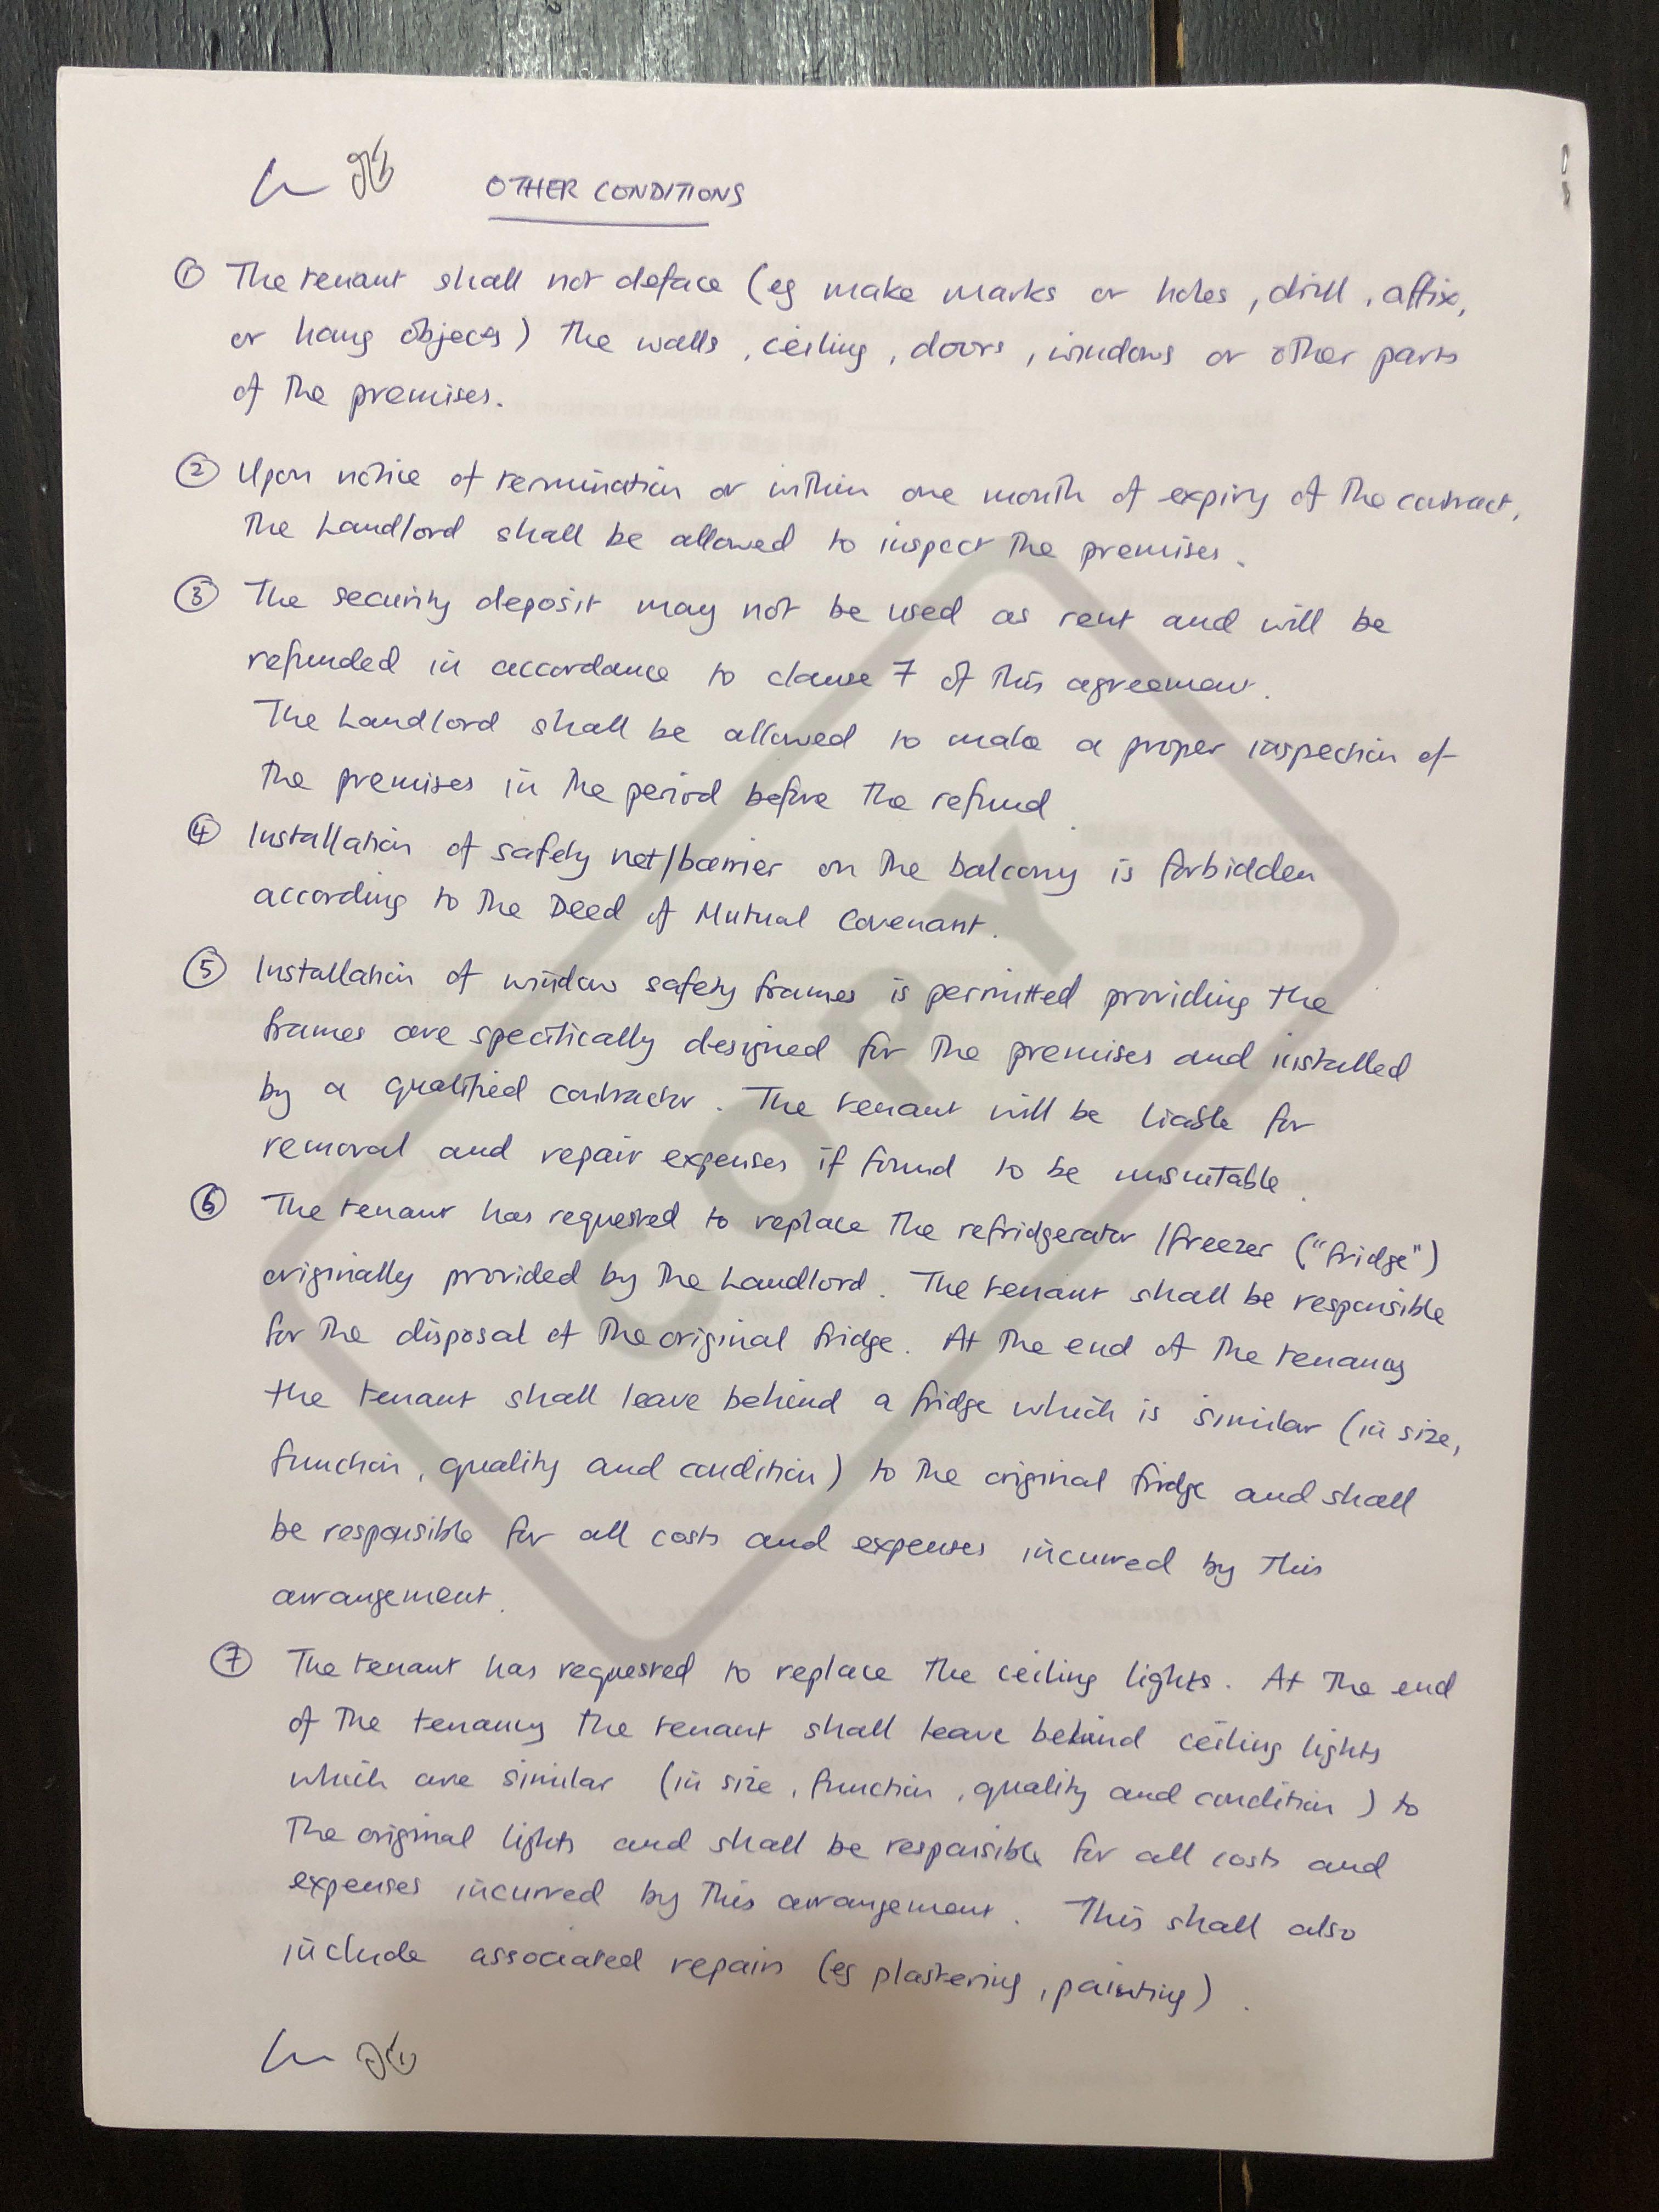 OTHER CONDITIONS
① The tenant shall not deface (eg make marks or holes, drill, affix,
or hang objects) the walls, ceiling, doors, windows or other parts
of the premises.
② Upon notice of termination or within one month of expiry of the contract,
the Landlord shall be allowed to inspect the premises.
③ The security deposit may not be used as rent and will be
refunded in accordance to clause 7 of this agreement.
The Landlord shall be allowed to make a proper inspection of
the premises in the period before the refund.
④ Installation of safety net/barrier on the balcony is forbidden
according to the Deed of Mutual Covenant.
⑤ Installation of window safety frames is permitted providing the
frames are specifically designed for the premises and installed
by a qualified contractor. The tenant will be liable for
removal and repair expenses if found to be unsuitable.
⑥ The tenant has requested to replace the refridgerator/freezer ("fridge")
originally provided by the Landlord. The tenant shall be responsible
for the disposal of the original fridge. At the end of the tenancy
the tenant shall leave behind a fridge which is similar (in size,
function, quality and condition) to the original fridge and shall
be responsible for all costs and expenses incurred by this
arrangement.
⑦ The tenant has requested to replace the ceiling lights. At the end
of the tenancy the tenant shall leave behind ceiling lights
which are similar (in size, function, quality and condition) to
the original lights and shall be responsible for all costs and
expenses incurred by this arrangement. This shall also
include associated repairs (eg plastering, painting).
COPY